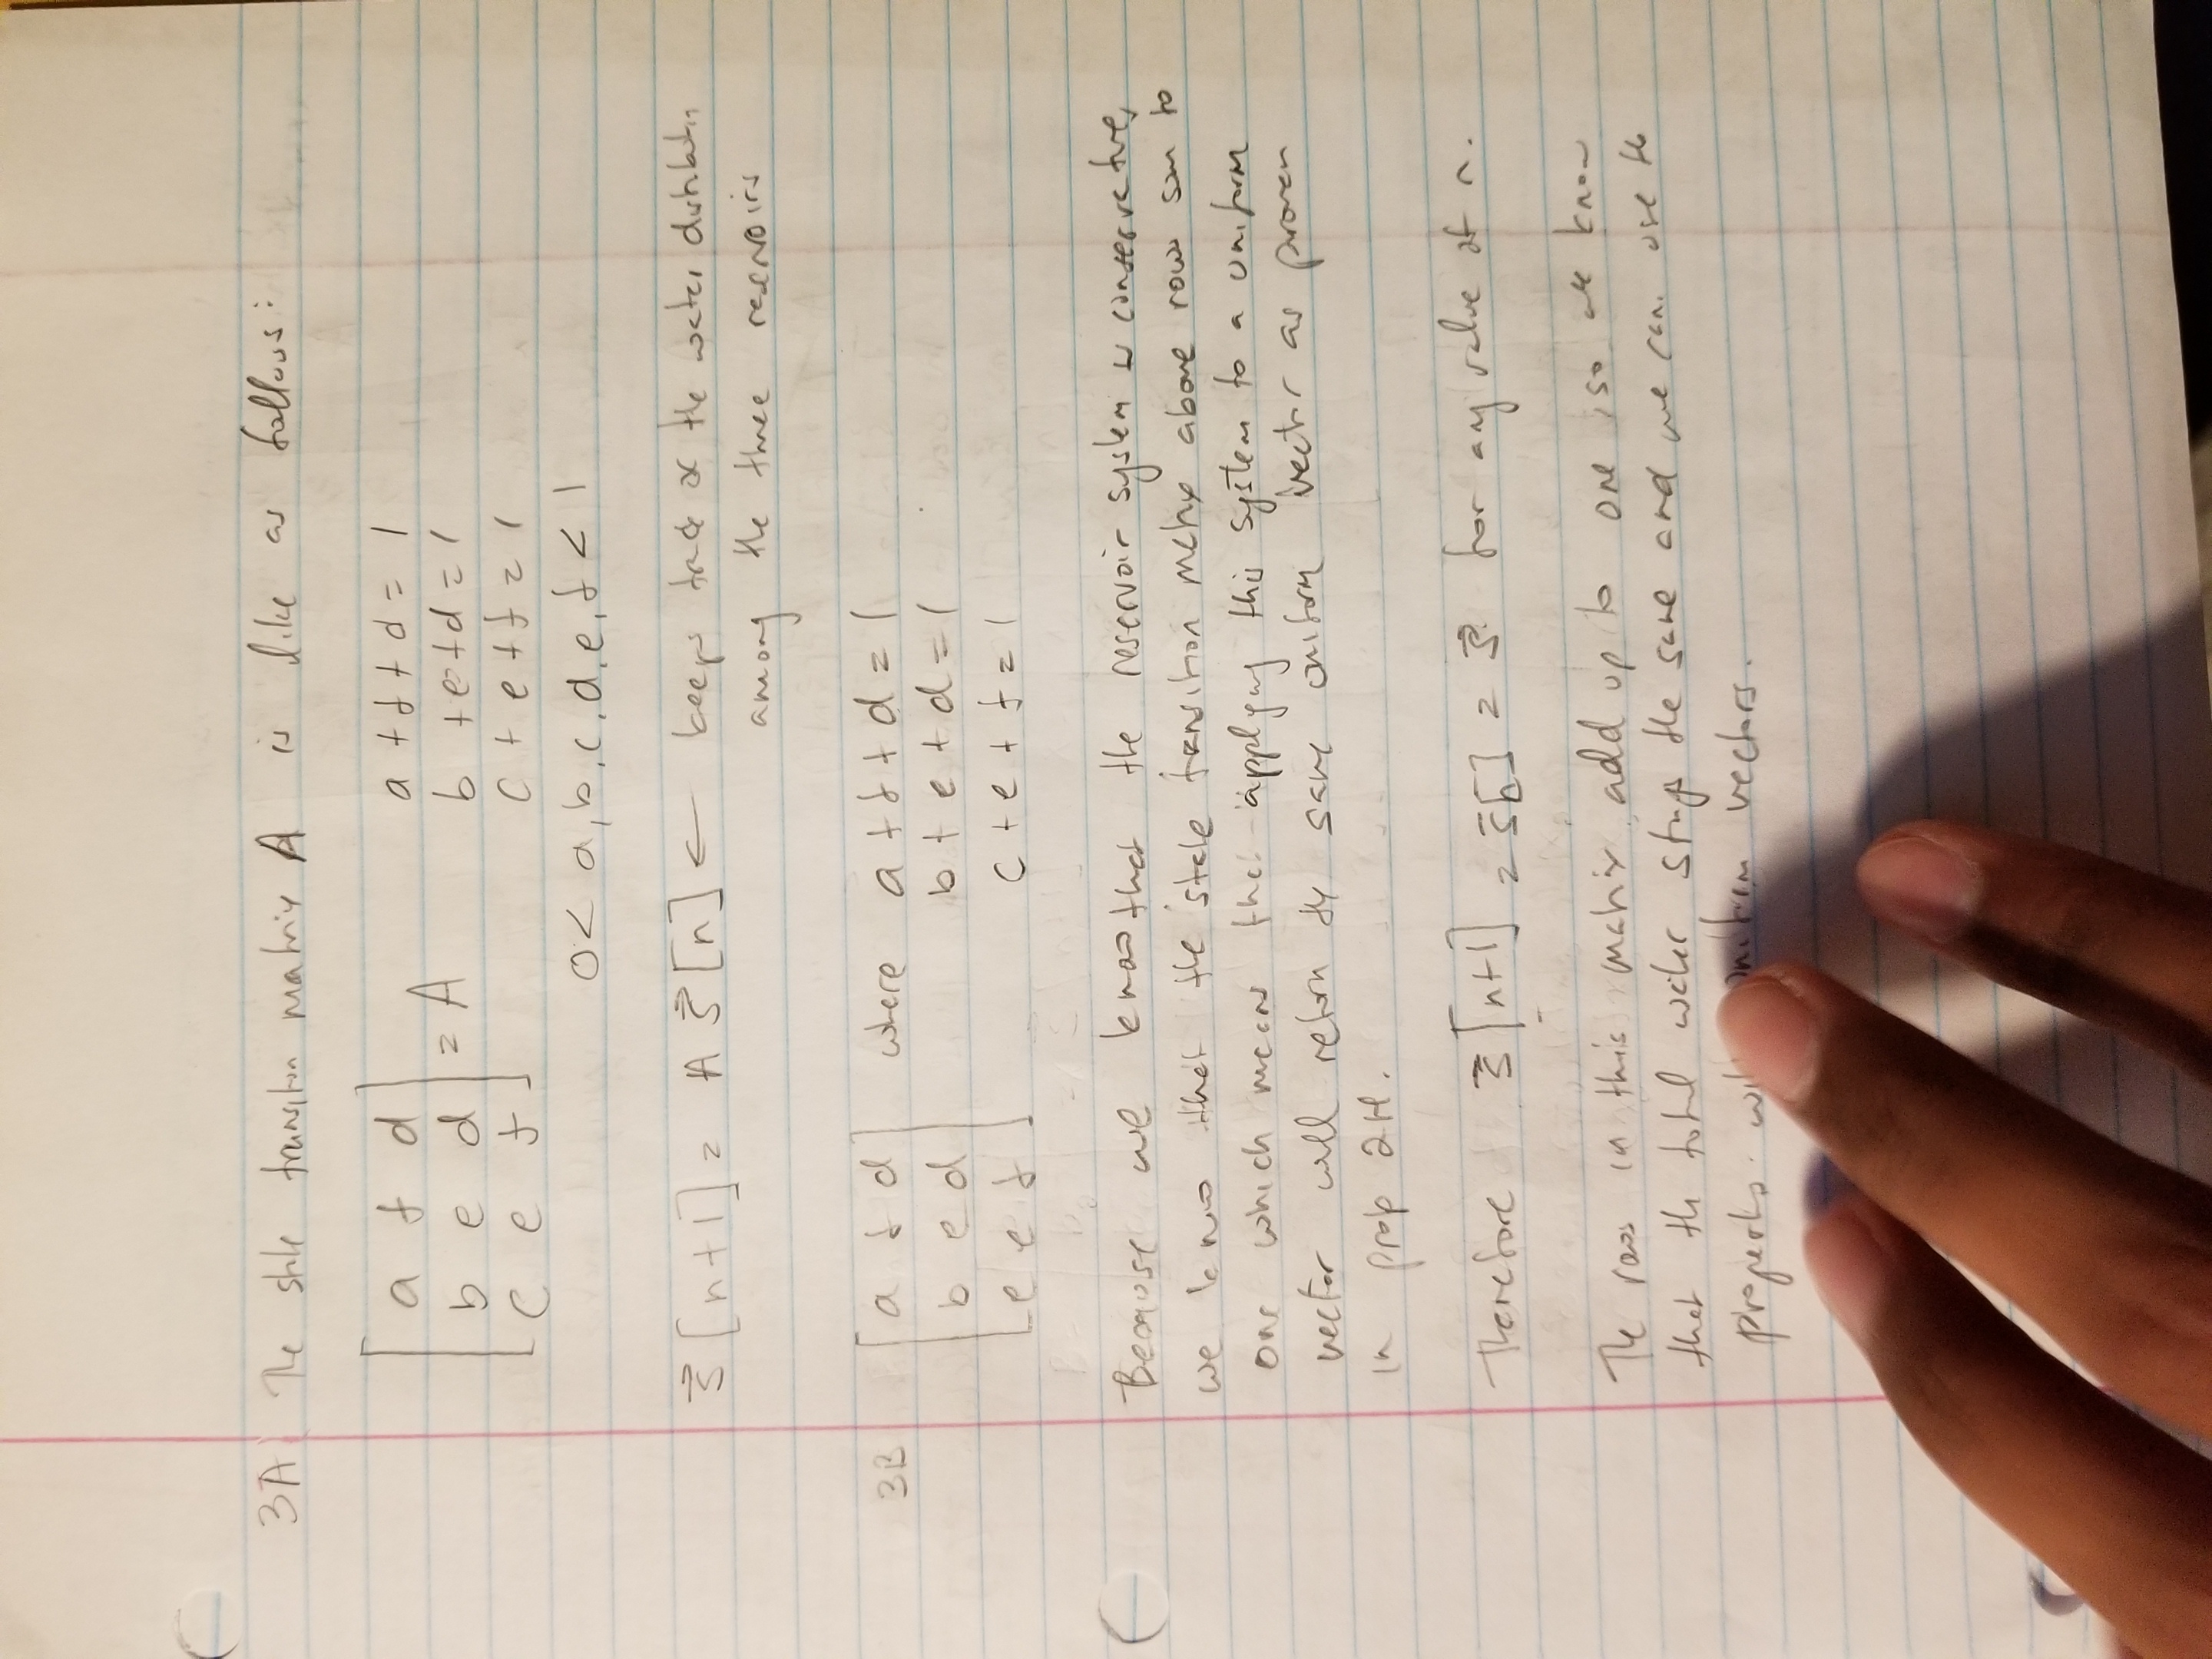 3A The state transition matrix A is like as follows:
[ a f d
b e d = A
c e f ]
a + f + d = 1
b + e + d = 1
c + e + f = 1
0 < a, b, c, d, e, f < 1
s⃗[n+1] = A s⃗[n] ← keeps track of the water distribution
among the three reservoirs
3B [ a f d
b e d
e e f ]
where a + f + d = 1
b + e + d = 1
c + e + f = 1
Because we know that the reservoir system is conservative,
we know that the state transition matrix above rows sum to
one which means that applying this system to a uniform
vector will return the same uniform vector as proven
in prop 2H.
Therefore s⃗[n+1] = s⃗[n] = s⃗ for any value of n.
The rows in this matrix add up to one, so we know
that the total water stays the same and we can use the
vectors.